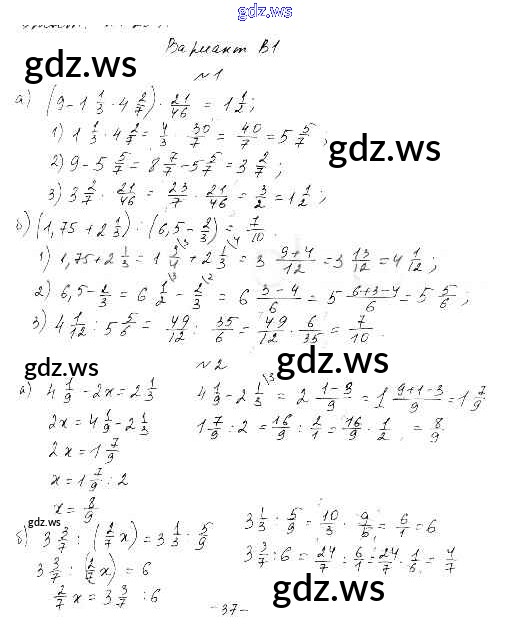 gdz.ws
Вариант В1
gdz.ws
№1
а) (9 - 1 1/3 · 4 2/7) · 21/46 = 1 1/2;
1) 1 1/3 · 4 2/7 = 4/3 · 30/7 = 40/7 = 5 5/7;
gdz.ws
2) 9 - 5 5/7 = 8 7/7 - 5 5/7 = 3 2/7;
3) 3 2/7 · 21/46 = 23/7 · 21/46 = 3/2 = 1 1/2;
б) (1,75 + 2 1/3) : (6,5 - 2/3) = 7/10.
1) 1,75 + 2 1/3 = 1 3/4 + 2 1/3 = 3 (9+4)/12 = 3 13/12 = 4 1/12;
2) 6,5 - 2/3 = 6 1/2 - 2/3 = 6 (3-4)/6 = 5 (6+3-4)/6 = 5 5/6;
3) 4 1/12 : 5 5/6 = 49/12 : 35/6 = 49/12 · 6/35 = 7/10.
gdz.ws
gdz.ws
№2
а) 4 1/9 - 2x = 2 1/3
4 1/9 - 2 1/3 = 2 (1-3)/9 = 1 (9+1-3)/9 = 1 7/9
2x = 4 1/9 - 2 1/3
1 7/9 : 2 = 16/9 : 2/1 = 16/9 · 1/2 = 8/9
2x = 1 7/9
x = 1 7/9 : 2
x = 8/9
gdz.ws
б) 3 3/7 : (2/7 x) = 3 1/3 · 5/9
3 1/3 : 5/9 = 10/3 · 9/5 = 6/1 = 6
3 3/7 : (2/7 x) = 6
3 3/7 : 6 = 24/7 : 6/1 = 24/7 · 1/6 = 4/7
2/7 x = 3 3/7 : 6
gdz.ws
-37-